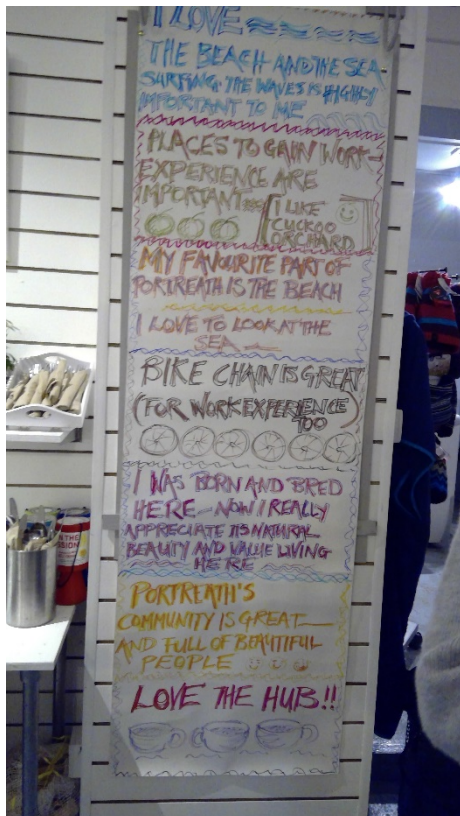 I LOVE
THE BEACH AND THE SEA
SURFING THE WAVES IS HIGHLY
IMPORTANT TO ME
PLACES TO GAIN WORK-
EXPERIENCE ARE
IMPORTANT
I LIKE
CUCKOO
ORCHARD
MY FAVOURITE PART OF
PORTREATH IS THE BEACH
I LOVE TO LOOK AT THE
SEA
BIKE CHAIN IS GREAT
(FOR WORK EXPERIENCE
TOO)
I WAS BORN AND BRED
HERE - NOW I REALLY
APPRECIATE ITS NATURAL
BEAUTY AND VALUE LIVING
HERE
PORTREATH'S
COMMUNITY IS GREAT
AND FULL OF BEAUTIFUL
PEOPLE
LOVE THE HUB!!